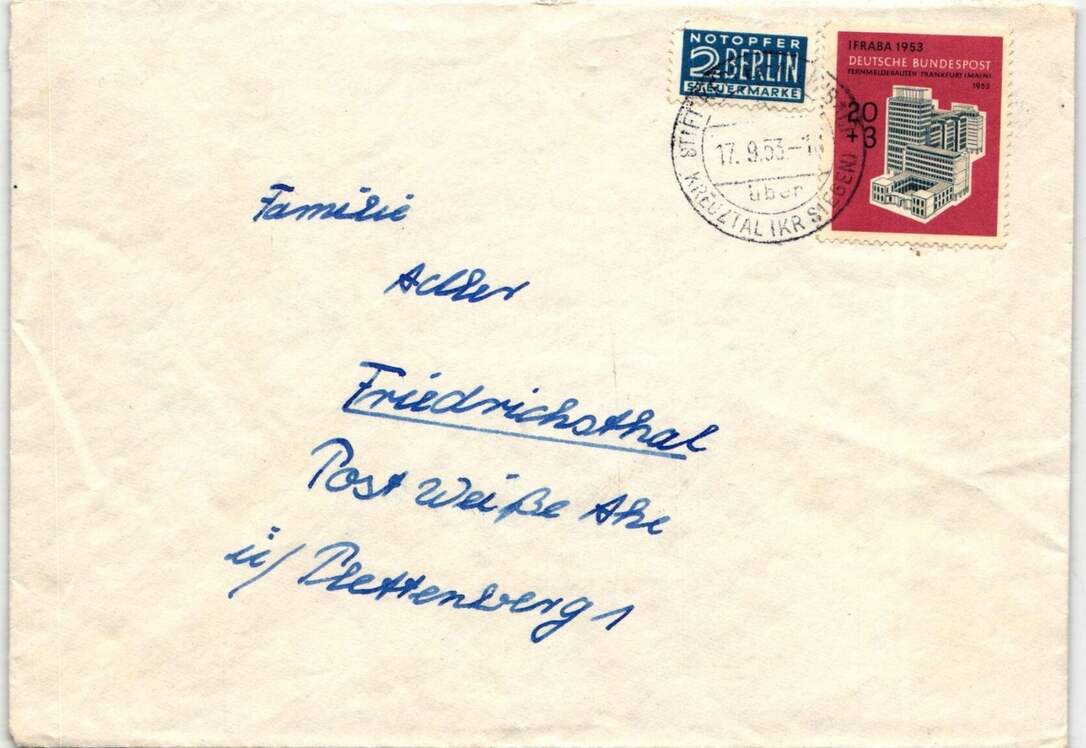 NOTOPFER
2 BERLIN
STEUERMARKE
IFRABA 1953
DEUTSCHE BUNDESPOST
FERNMELDEBAUTEN FRANKFURT (MAIN)
1953
20
+3
STIFT
17. 9. 53
über
KREUZTAL (KR SIEGEN)
Familie
Adler
Friedrichsthal
Post Weiße Ahe
ü/ Plettenberg 1